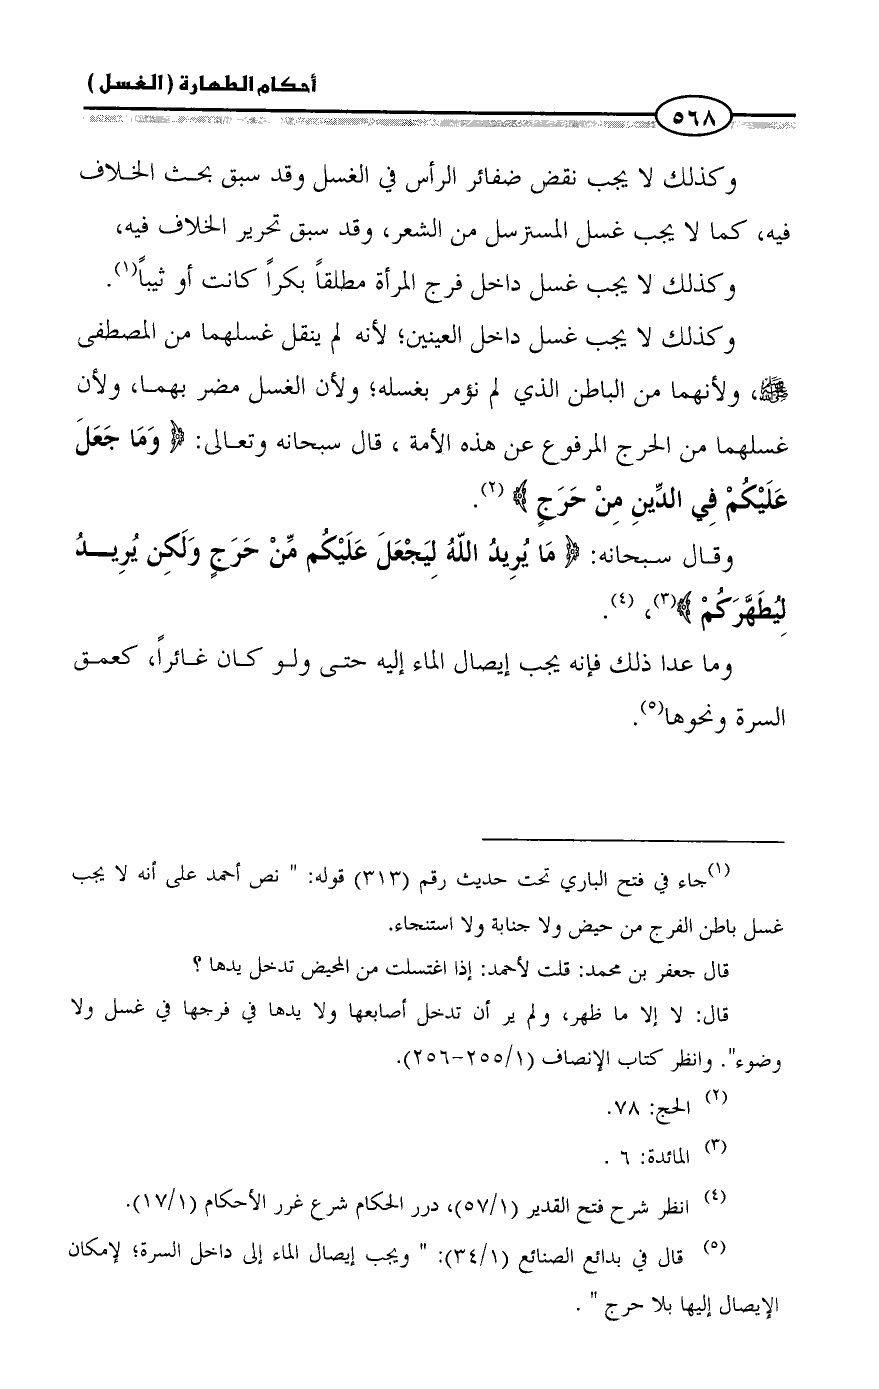 أحكام الطهارة (الغسل)
٥٦٨
وكذلك لا يجب نقض ضفائر الرأس في الغسل وقد سبق بحث الخلاف
فيه، كما لا يجب غسل المسترسل من الشعر، وقد سبق تحرير الخلاف فيه،
وكذلك لا يجب غسل داخل فرج المرأة مطلقاً بكراً كانت أو ثيباً(١).
وكذلك لا يجب غسل داخل العينين؛ لأنه لم ينقل غسلهما من المصطفى
ﷺ، ولأنهما من الباطن الذي لم نؤمر بغسله؛ ولأن الغسل مضر بهما، ولأن
غسلهما من الحرج المرفوع عن هذه الأمة ، قال سبحانه وتعالى: ﴿ وَمَا جَعَلَ
عَلَيْكُمْ فِي الدِّينِ مِنْ حَرَجٍ ﴾ (٢).
وقال سبحانه: ﴿ مَا يُرِيدُ اللَّهُ لِيَجْعَلَ عَلَيْكُم مِّنْ حَرَجٍ وَلَكِن يُرِيدُ
لِيُطَهَّرَكُمْ ﴾(٣)، (٤).
وما عدا ذلك فإنه يجب إيصال الماء إليه حتى ولو كان غائراً، كعمق
السرة ونحوها(٥).
(١) جاء في فتح الباري تحت حديث رقم (٣١٣) قوله: " نص أحمد على أنه لا يجب
غسل باطن الفرج من حيض ولا جنابة ولا استنجاء.
قال جعفر بن محمد: قلت لأحمد: إذا اغتسلت من المحيض تدخل يدها ؟
قال: لا إلا ما ظهر، ولم ير أن تدخل أصابعها ولا يدها في فرجها في غسل ولا
وضوء". وانظر كتاب الإنصاف (٢٥٥/١-٢٥٦).
(٢) الحج: ٧٨.
(٣) المائدة: ٦ .
(٤) انظر شرح فتح القدير (٥٧/١)، درر الحكام شرع غرر الأحكام (١٧/١).
(٥) قال في بدائع الصنائع (٣٤/١): " ويجب إيصال الماء إلى داخل السرة؛ لإمكان
الإيصال إليها بلا حرج " .